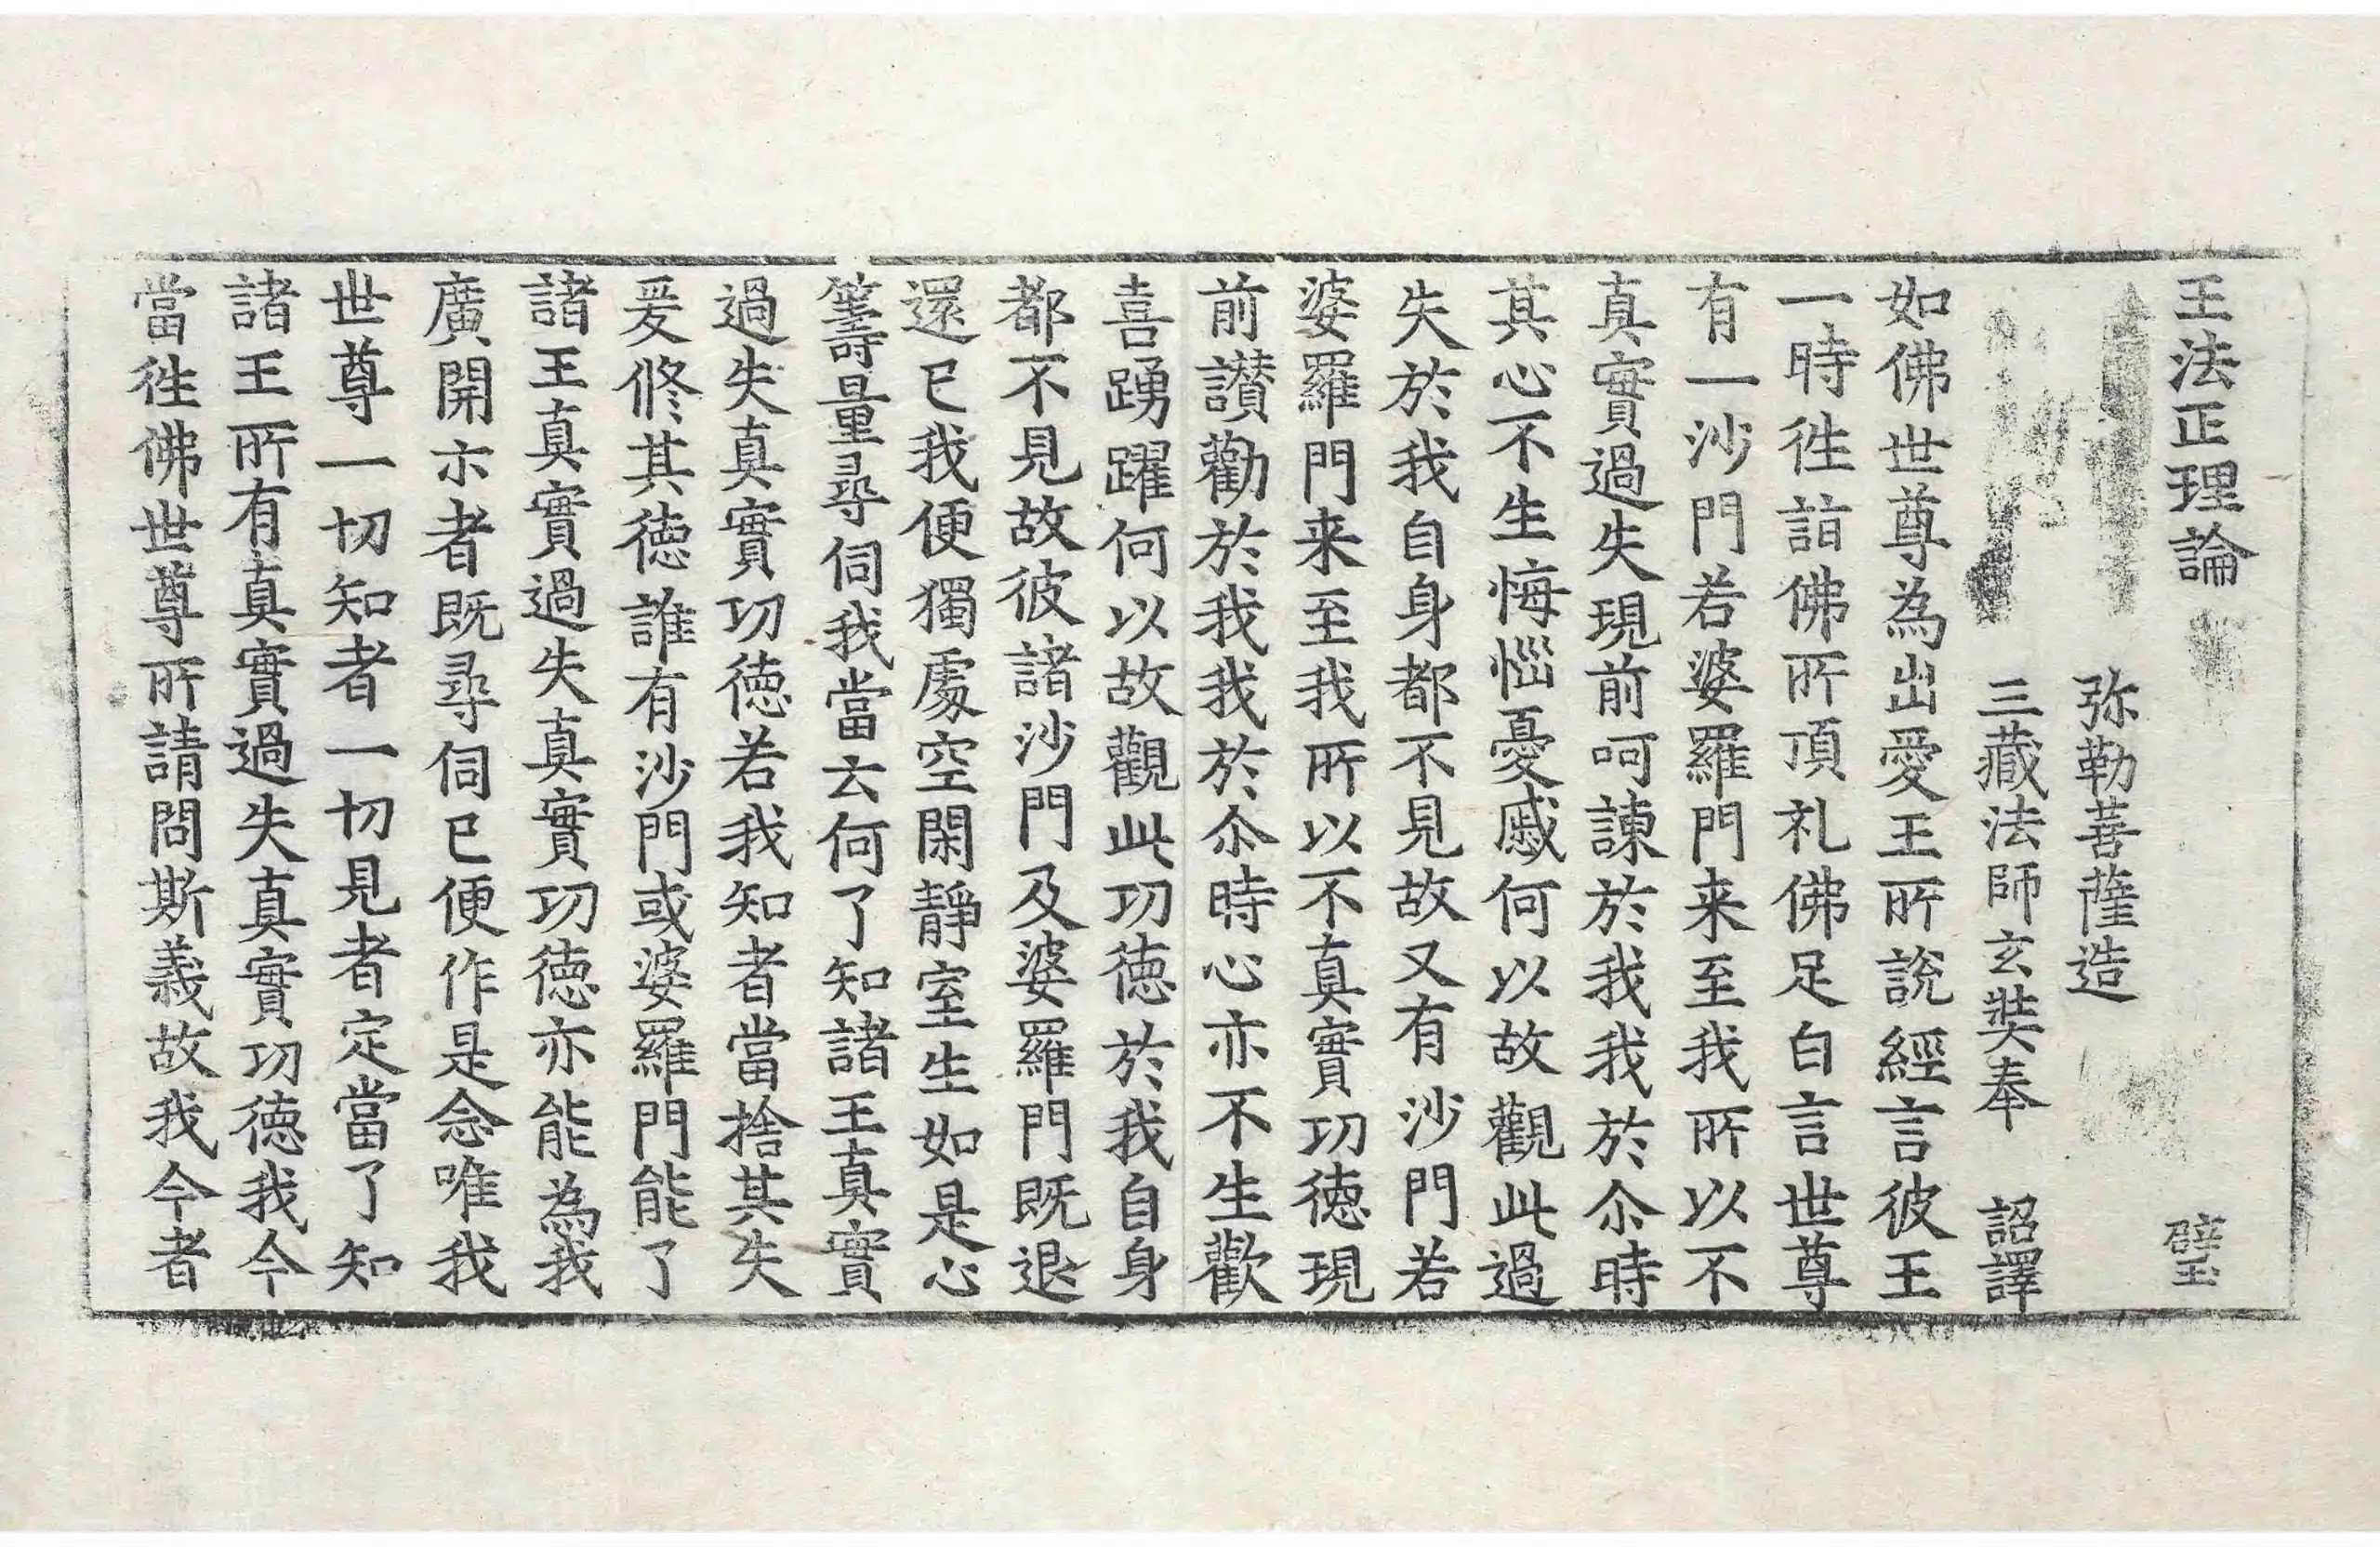 王法正理論 璧
弥勒菩薩造
三藏法師玄奘奉 詔譯
如佛世尊為出愛王所說經言彼王
一時徃詣佛所頂礼佛足白言世尊
有一沙門若婆羅門来至我所以不
真實過失現前呵諫於我我於尒時
其心不生悔惱憂慼何以故觀此過
失於我自身都不見故又有沙門若
婆羅門来至我所以不真實功德現
前讃勸於我我於尒時心亦不生歡
喜踴躍何以故觀此功德於我自身
都不見故彼諸沙門及婆羅門既退
還已我便獨處空閑靜室生如是心
籌量尋伺我當云何了知諸王真實
過失真實功德若我知者當捨其失
爰修其德誰有沙門或婆羅門能了
諸王真實過失真實功德亦能為我
廣開示者既尋伺已便作是念唯我
世尊一切知者一切見者定當了知
諸王所有真實過失真實功德我今
當徃佛世尊所請問斯義故我今者